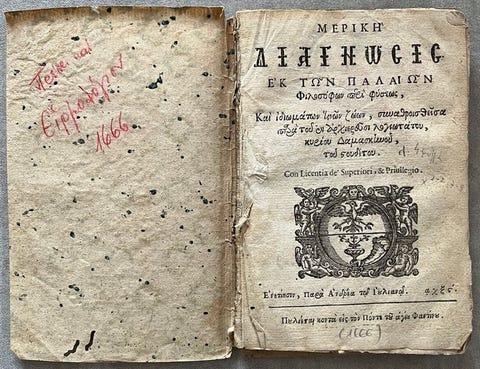 και
1666
ΜΕΡΙΚΗ
ΔΙΑΓΝΩΣΙΣ
ΕΚ ΤΩΝ ΠΑΛΑΙΩΝ
Φιλοσόφων περὶ φύσεως,
Καὶ ἰδιωμάτων τινῶν ζώων, συναθροισθεῖσα
παρὰ τοῦ ἐν ἀρχιερεῦσι λογιωτάτου,
κυρίου Δαμασκηνοῦ,
τοῦ Στουδίτου.
Con Licentia de' Superiori, & Priuilegio.
Ἐνετίησιν, Παρὰ Ἀνδρέᾳ τῷ Ἰουλιανῷ. αχξς.
Πωλεῖται κοντὰ εἰς τὸν Πόντε τοῦ ἁγίου Φαντίνου.
(1666)